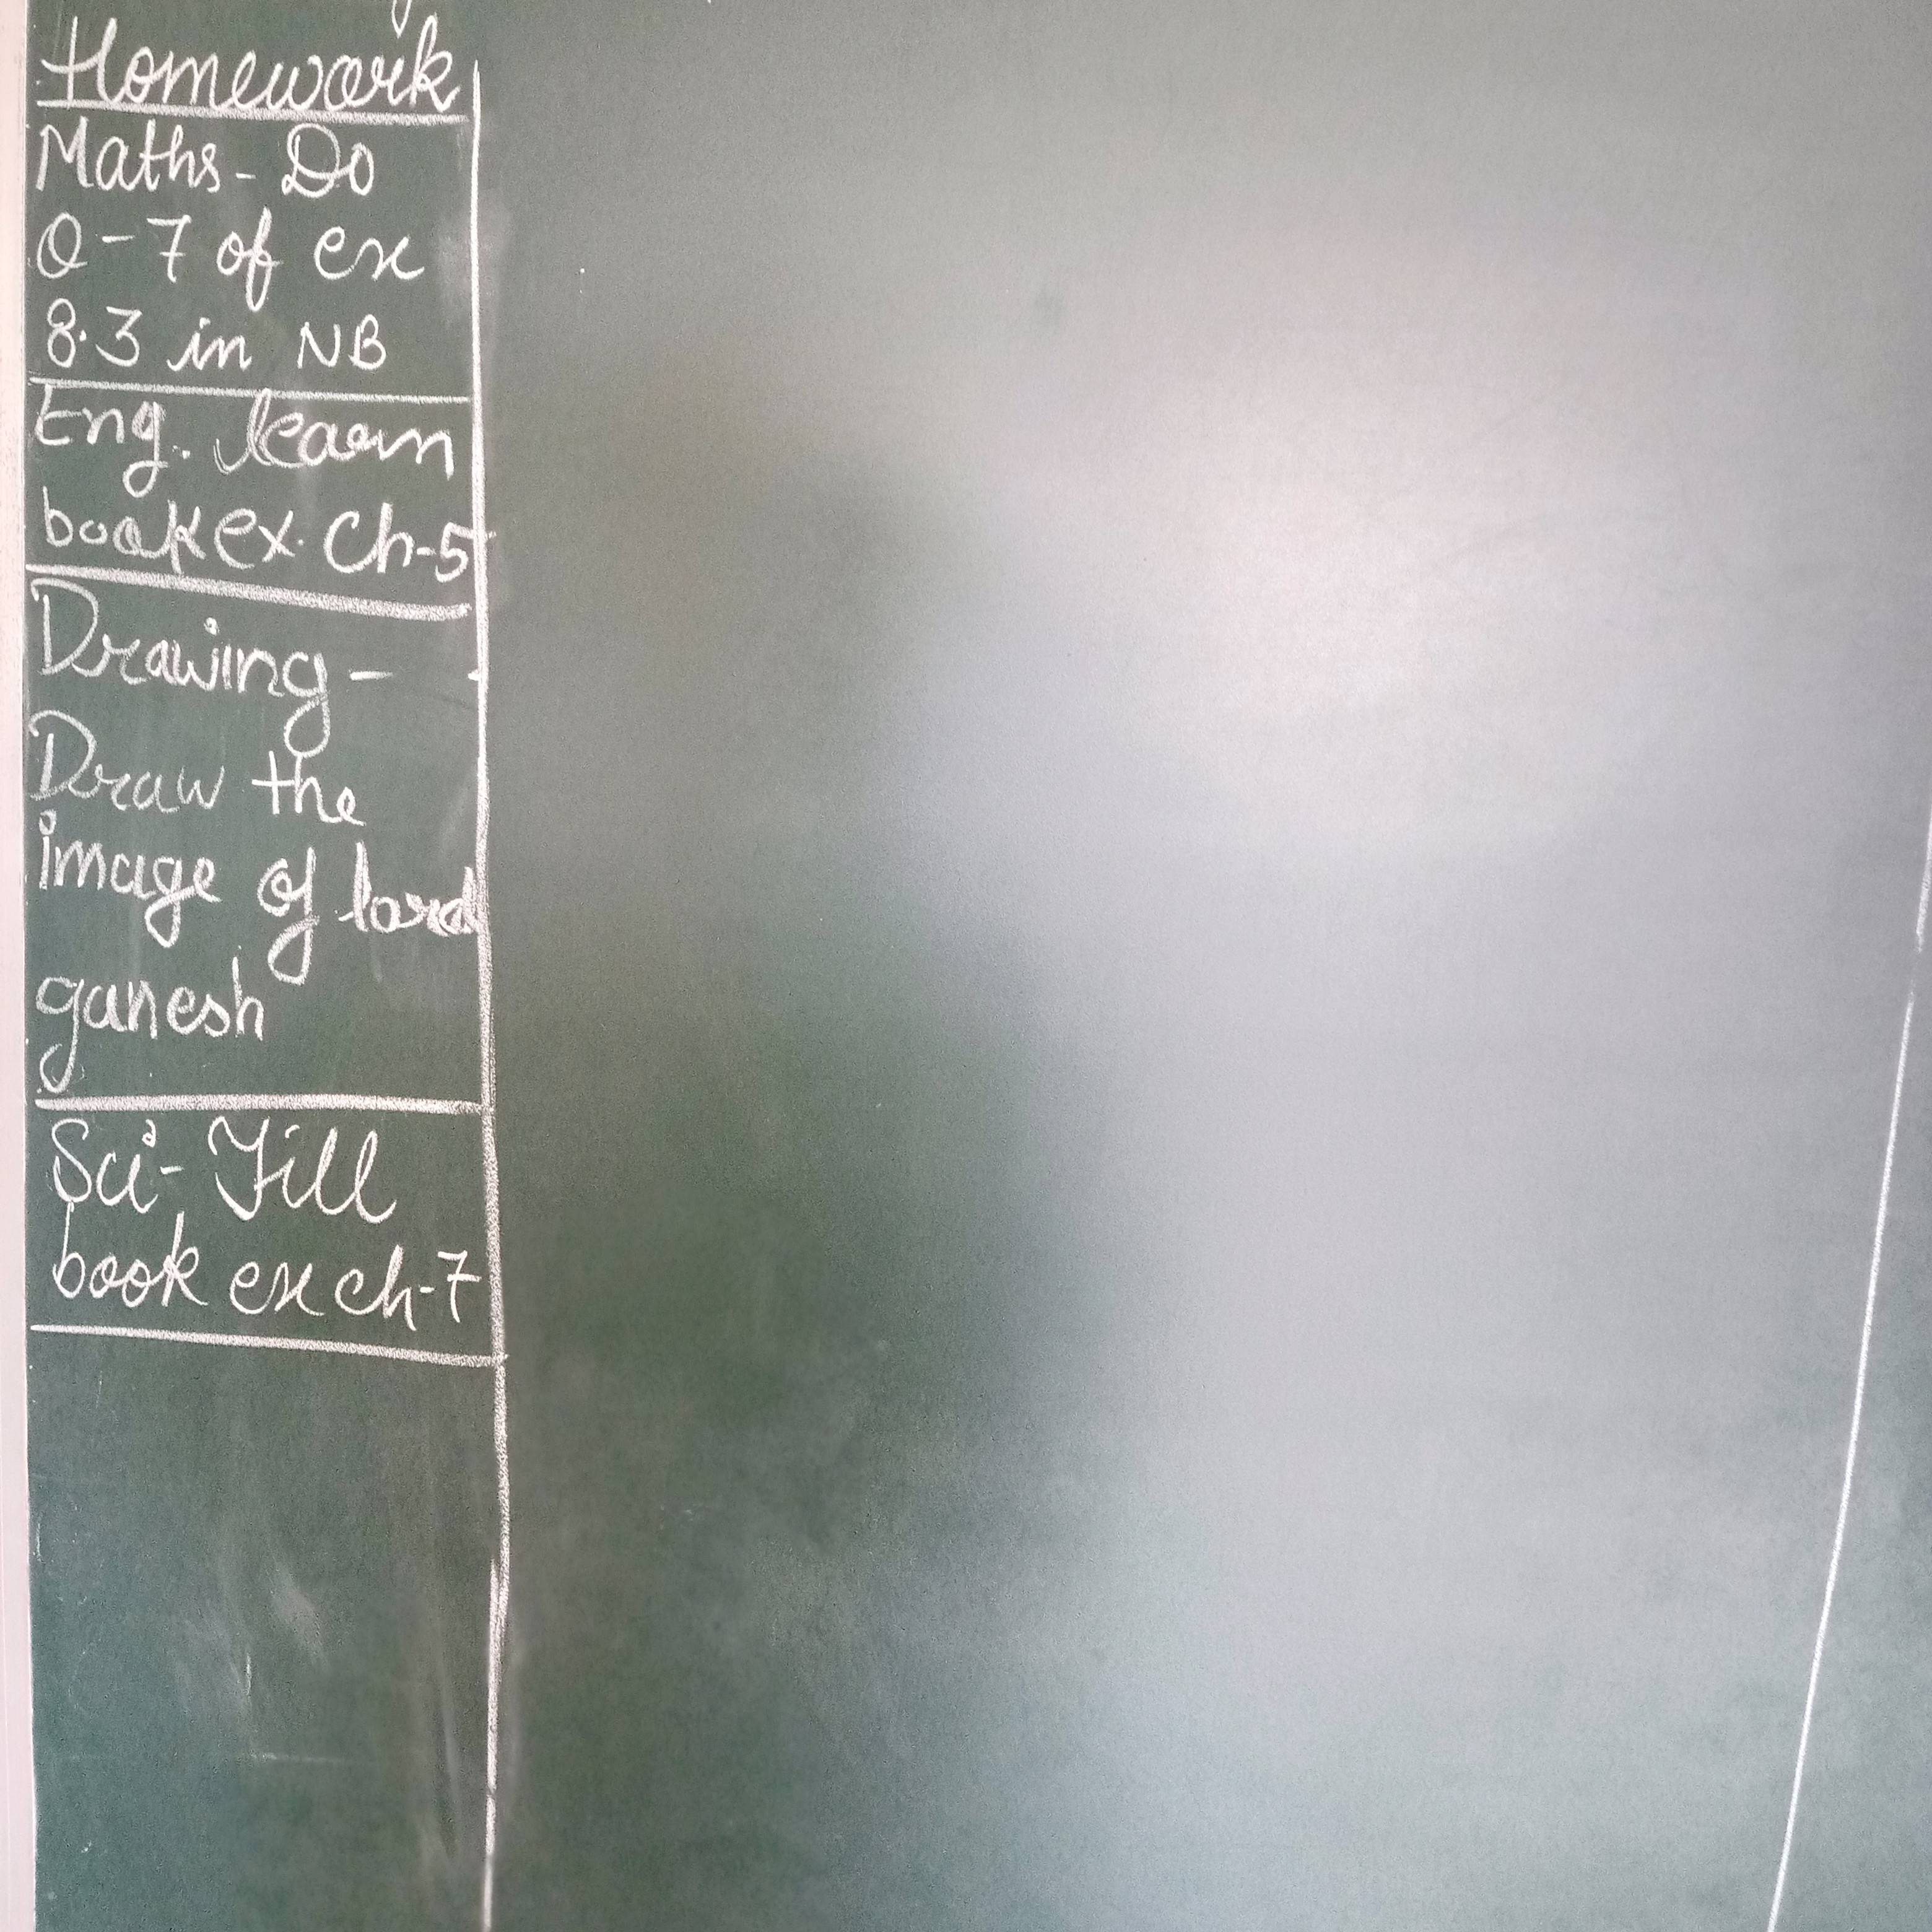 Homework
Maths - Do
Q-7 of ex
8.3 in NB
Eng. learn
book ex. Ch-5
Drawing -
Draw the
image of lord
ganesh
Sci - Fill
book ex ch-7